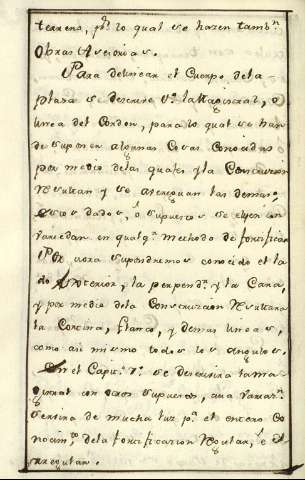 terreno, p.r lo qual se hazen tamb.n
Obras Acsesorias.
Para delinear el Cuerpo dela
plaza se descrive 1.o la Magistral, o
linea del Cordon, para lo qual se han
de suponer algunas Cosas Conocidas
por medio delas quales y la Construcsion
Resultan y se averiguan las demas,
estos dados, ó supuestos se elijen con
variedad en qualq.a Methodo de fortificar
Por aora supondremos conocido el la
do Exterior, la perpend.r y la Cara,
y por medio dela Construcsion Resultara
la Cortina, flanco, y demas lineas,
como asi mismo todos los angulos.
En el Capit.o se descrivira la ma
gistral con otros supuestos, cuia variaz.n
servira de mucha luz p.a el entero Co
nocim.to dela fortificasion Regular, é
irregular.